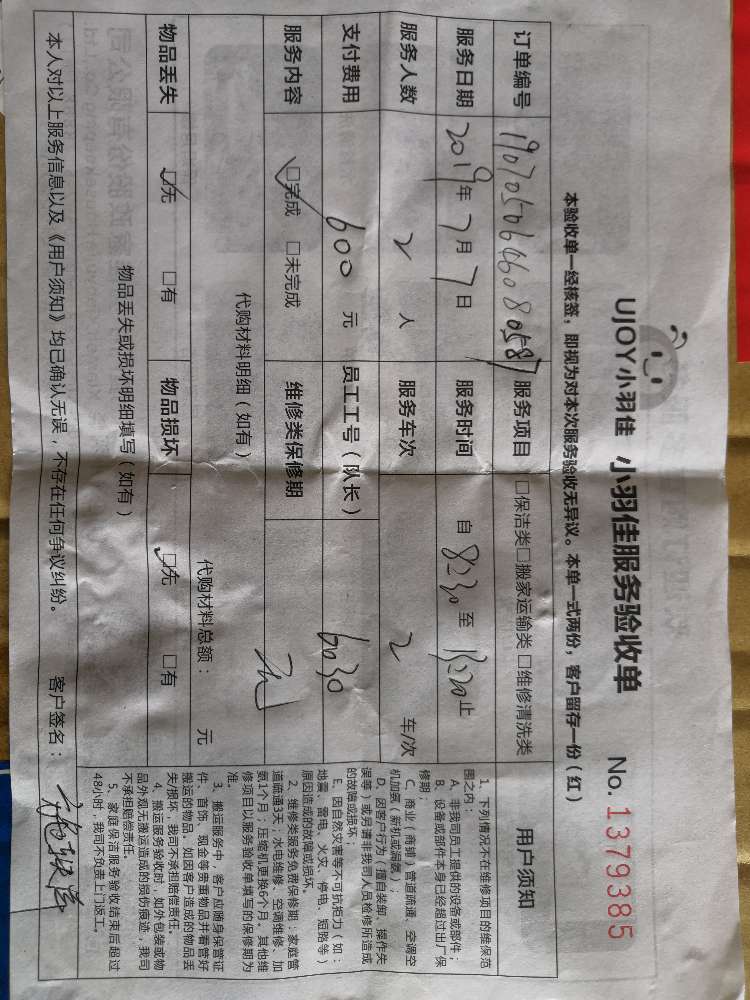 UJOY小羽佳 小羽佳服务验收单 No. 1379385
本验收单一经核签，即视为对本次服务验收无异议。本单一式两份，客户留存一份（红）
订单编号 服务项目 □保洁类□搬家运输类□维修清洗类
服务日期 2019年7月7日 服务时间 自 8:30 至 止
服务人数 2 人 服务车次 2 车/次
支付费用 600 元 员工工号（队长） 6030
服务内容 ☑完成 □未完成 维修类保修期
代购材料明细（如有） 代购材料总额： 元
物品丢失 ☑无 □有 物品损坏 ☑无 □有
物品丢失或损坏明细填写（如有）
本人对以上服务信息以及《用户须知》均已确认无误，不存在任何争议纠纷。 客户签名：
用户须知
1、下列情况不在维修项目的维保范
围之内：
A、非我司员工提供的设备或部件；
B、设备或部件本身已经超过出厂保
修期；
C、商业（商铺）管道疏通、空调空
机加氨（新机或漏氨）；
D、因客户行为（擅自装卸、操作失
误等）或另请非我司人员检修所造成
的故障或损坏；
E、因自然灾害等不可抗拒力（如：
地震、雷电、火灾、停电、短路等）
原因造成的故障或损坏。
2、维修类服务免费保修期：家庭管
道疏通3天；水电维修、空调维修、加
氨1个月；压缩机更换6个月。其他维
修项目以服务验收单填写的保修期为
准。
3、搬运服务中，客户应随身保管证
件、首饰、现金等贵重物品并看管好
搬运的物品，如因客户造成的物品丢
失/损坏，我司不承担赔偿责任。
4、搬运服务验收时，如外包装或物
品外观无搬运造成的损伤痕迹，我司
不承担赔偿责任。
5、家庭保洁服务验收结束后超过
48小时，我司不负责上门返工。